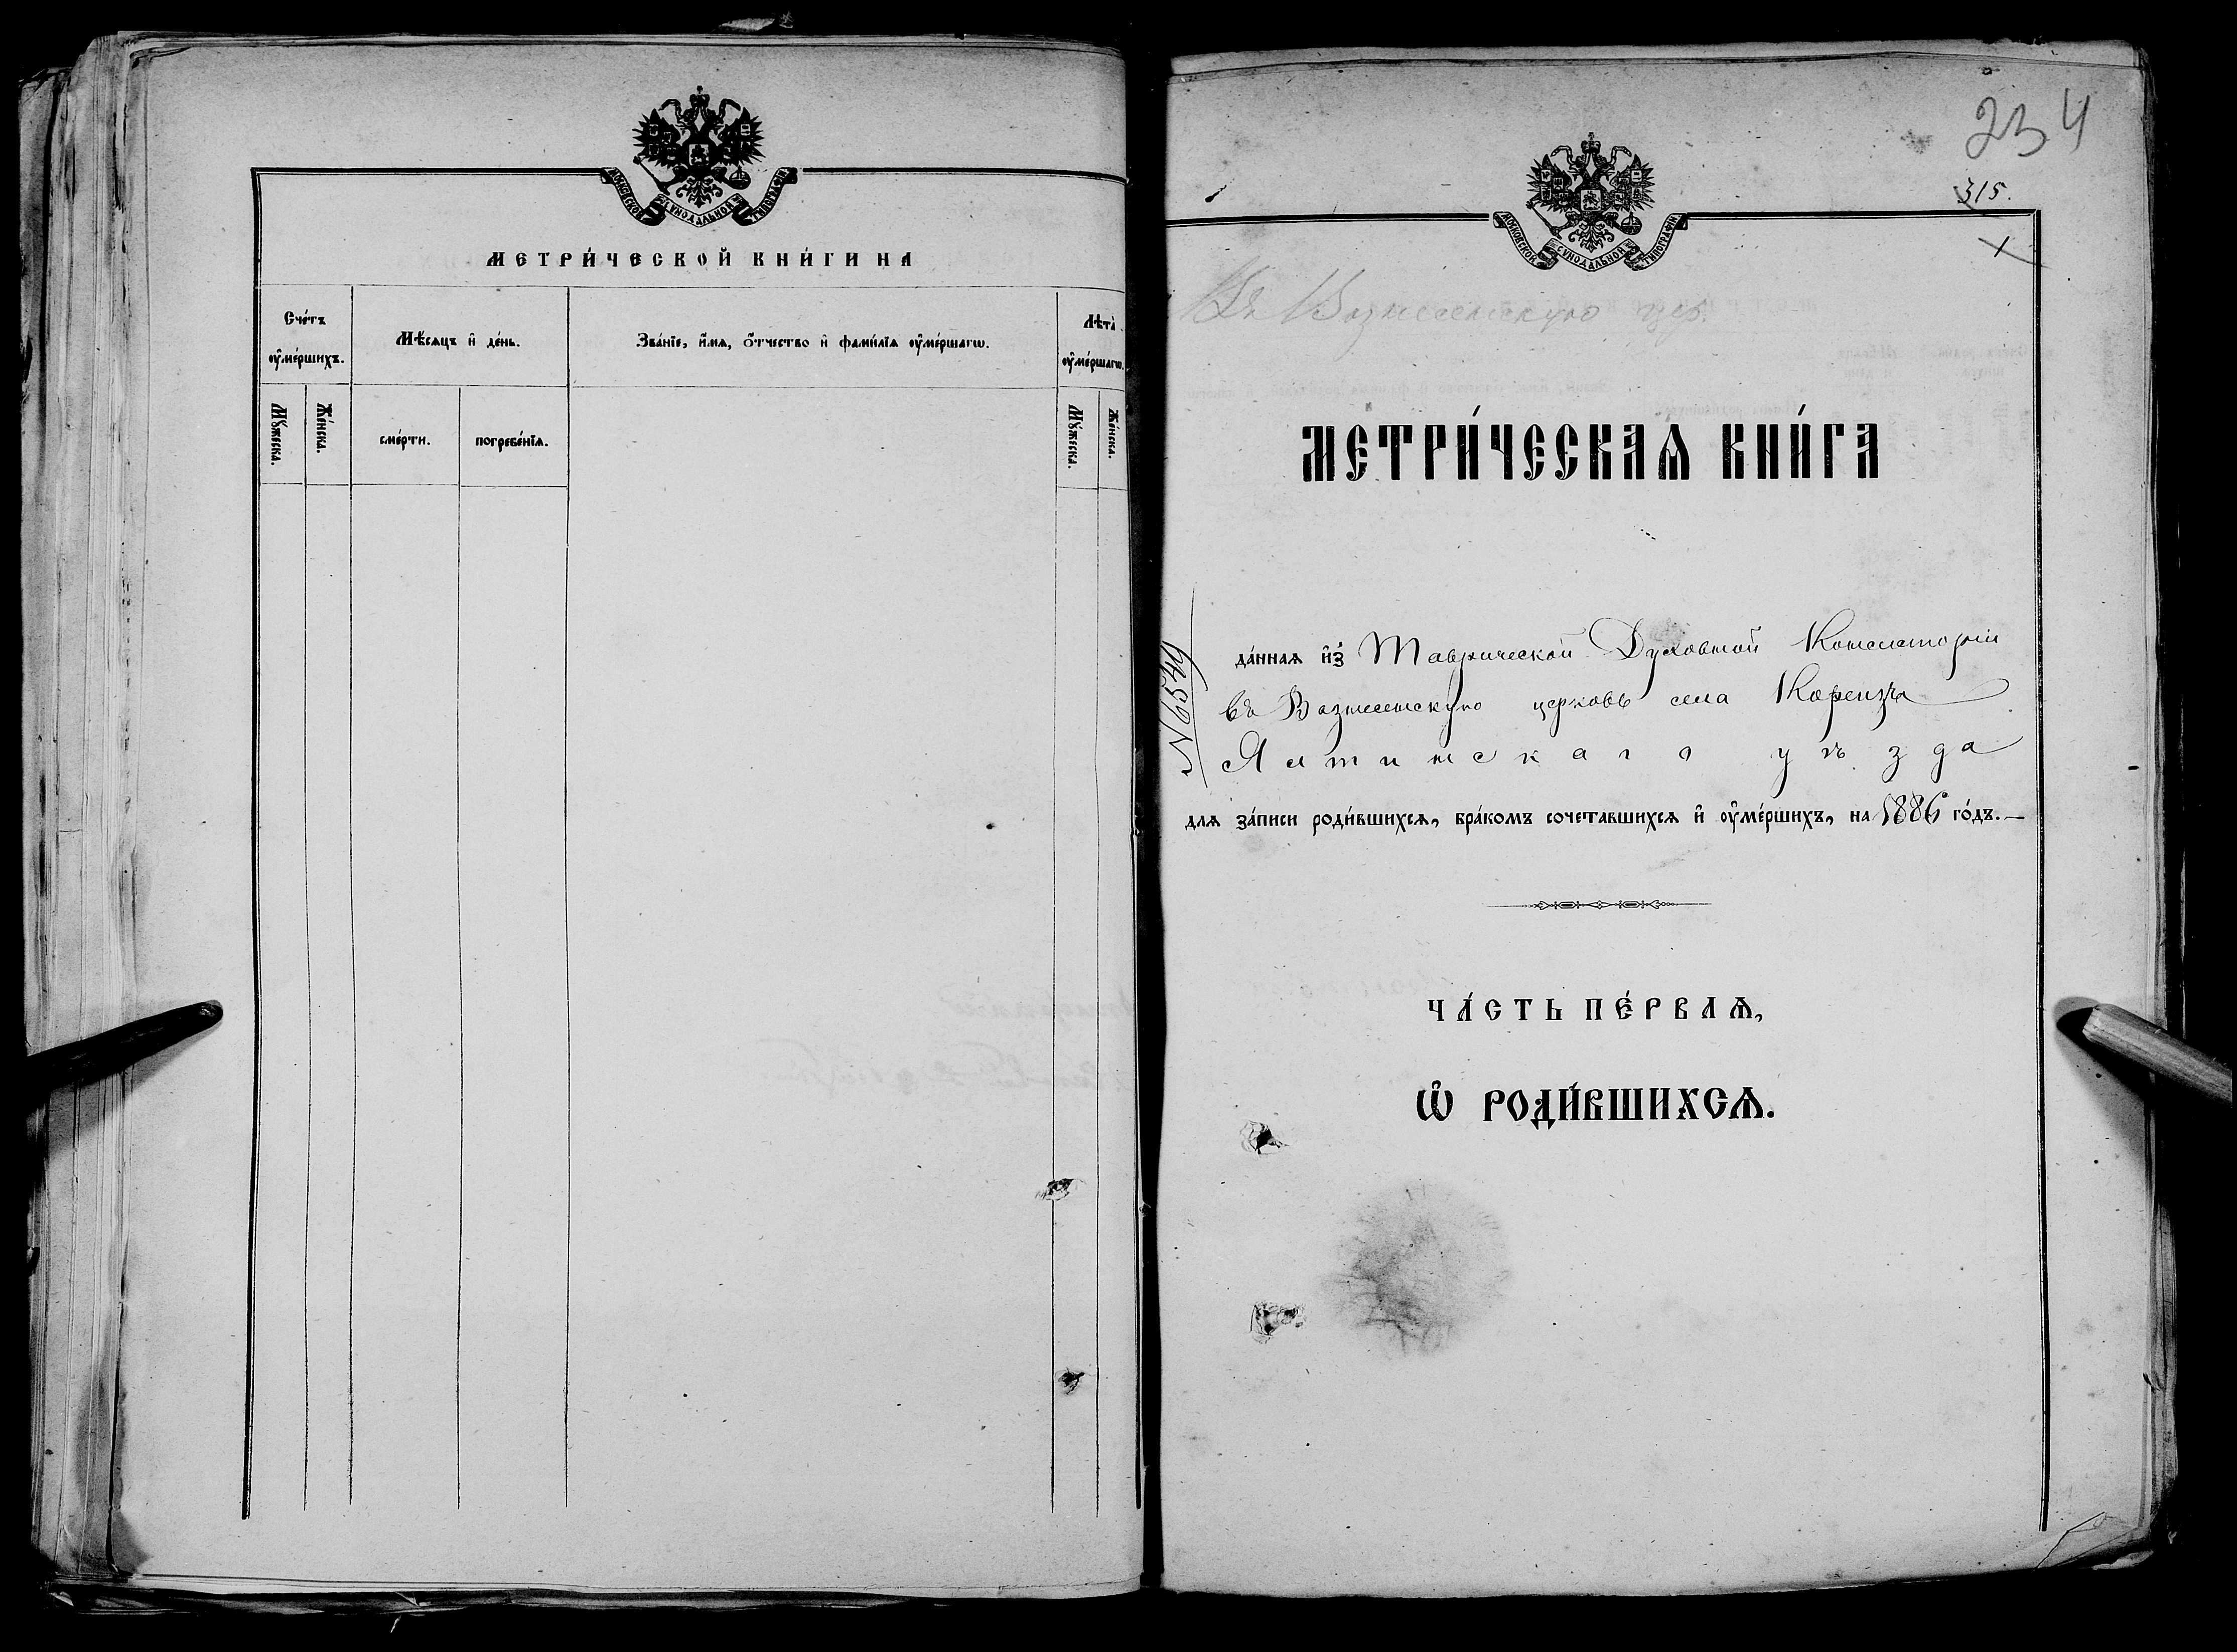 МОСКОВСКОЙ СѴНОДАЛЬНОЙ ТИПОГРАФІИ
МЕТРИ́ЧЕСКОЙ КНИ́ГИ НА
Сче́тъ ᲂу҆ме́ршихъ.
Мѣ́сяцъ и҆ де́нь.
Зва́нїе, и҆́мѧ, ѻ҆́тчество и҆ фами́лїѧ ᲂу҆ме́ршагѡ.
Лѣта̀ ᲂу҆ме́ршагѡ.
Мꙋ́жеска.
Же́нска.
сме́рти.
погребе́нїѧ.
Мꙋ́жеска.
Же́нска.
234
315.
МОСКОВСКОЙ СѴНОДАЛЬНОЙ ТИПОГРАФІИ
Въ Вознесенскую цер.
МЕТРИ́ЧЕСКАѦ КНИ́ГА
№ 6549
да́ннаѧ и҆з̾ Таврической Духовной Консисторіи
въ Вознесенскую церковь села Кореизъ
Ялтинскаго уѣзда
длѧ за́писи роди́вшихсѧ, бра́комъ сочета́вшихсѧ и҆ ᲂу҆ме́ршихъ, на 1886 го́дъ.
ЧА́СТЬ ПЕ́РВАѦ,
Ѡ҆ РОДИ́ВШИХСѦ.